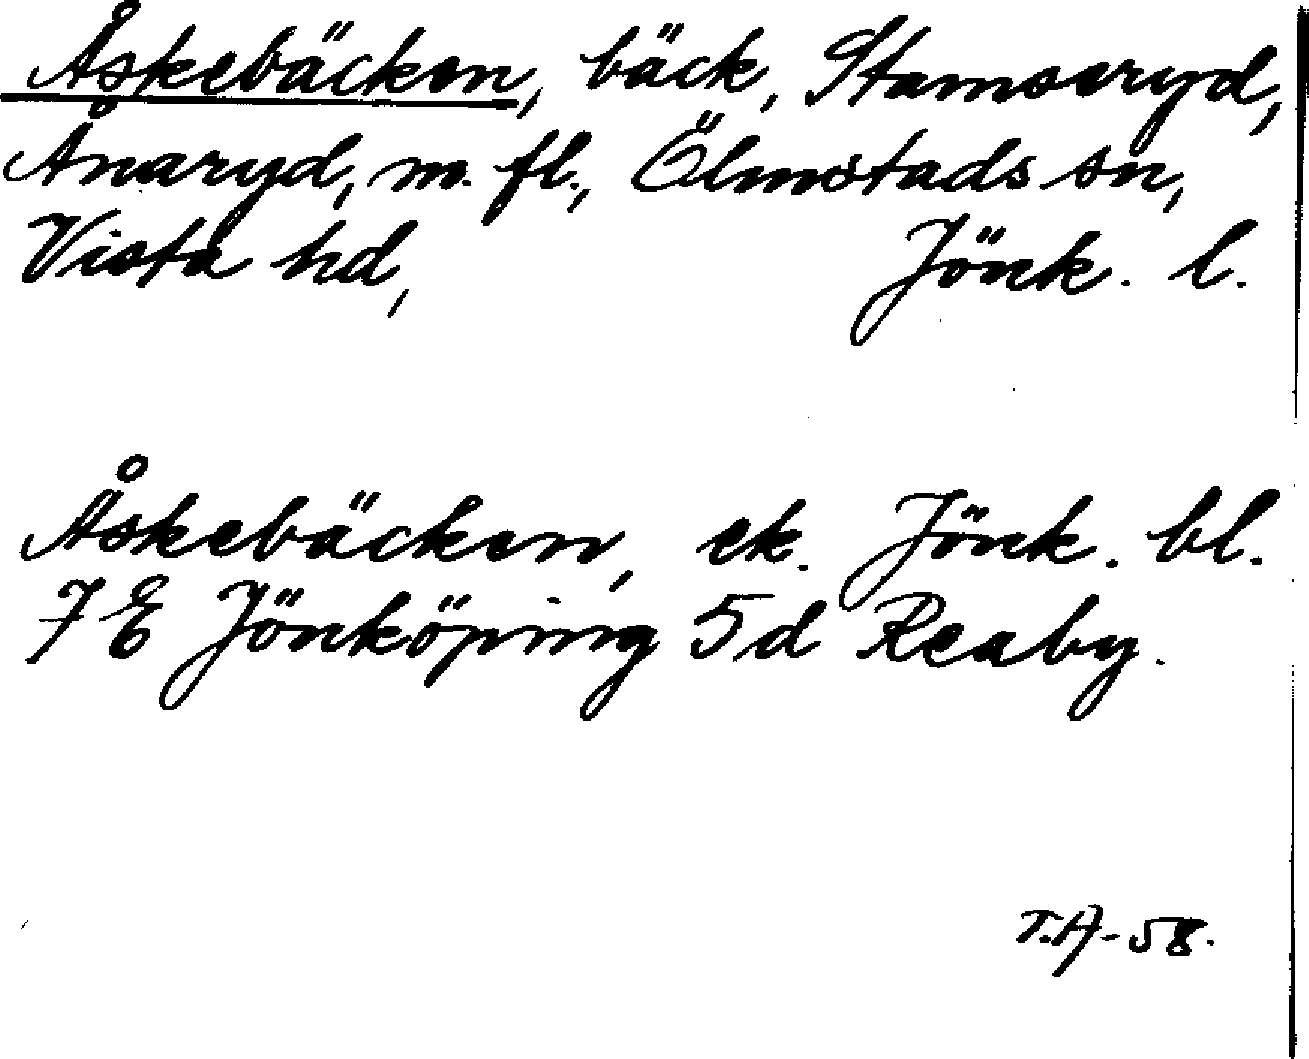 Åskebäcken, bäck, Stamseryd,
Ånaryd, m. fl., Ölmstads sn,
Vista hd, Jönk. l.
Åskebäcken, ek. Jönk. bl.
7 E Jönköping 5d Reaby.
T.A-58.